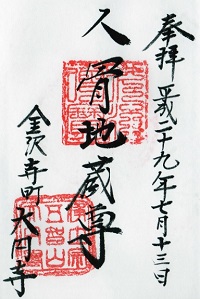 奉拝 平成二十九年七月十三日
人骨地蔵尊
金沢寺町 大円寺